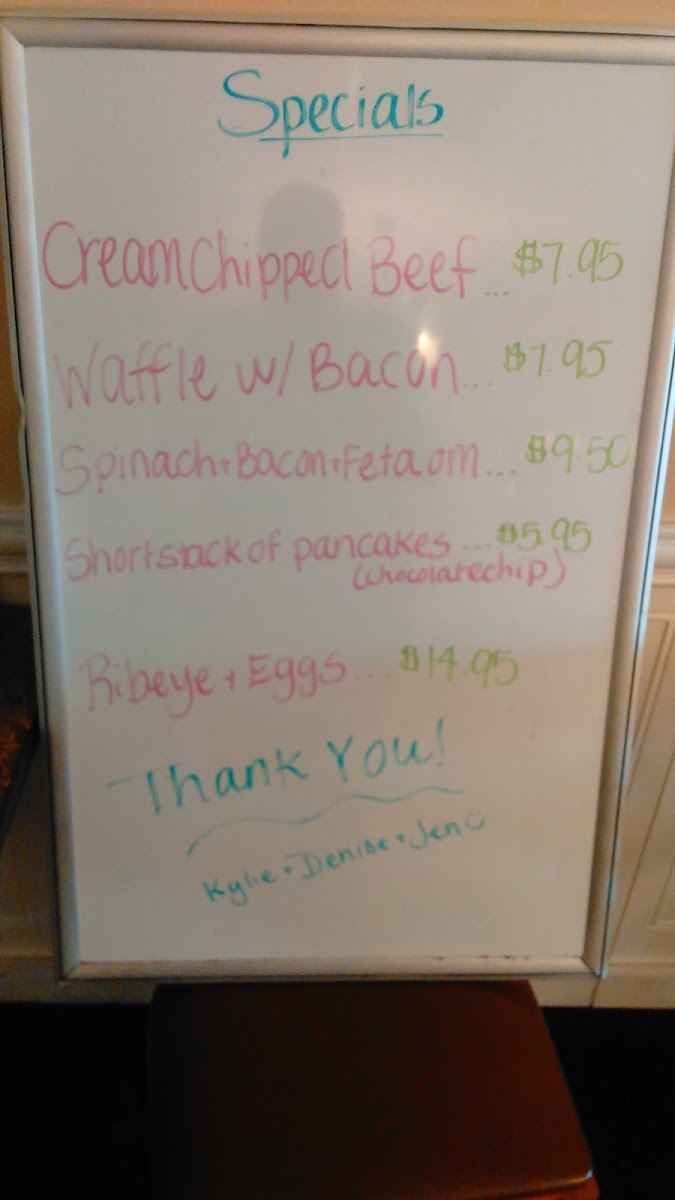 Specials
Cream Chipped Beef...$7.95
Waffle w/ Bacon...$7.95
Spinach+Bacon+Feta om...$9.50
Short stack of pancakes...$5.95
(chocolate chip)
Ribeye + Eggs...$14.95
Thank You!
Kylie + Denise + Jen